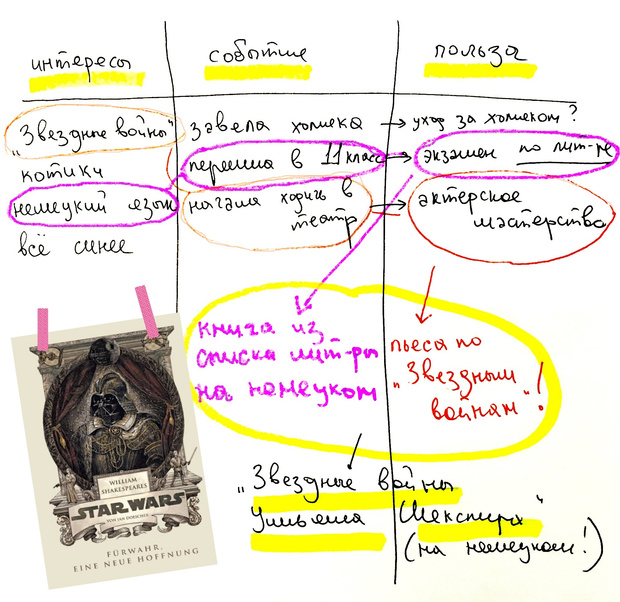 интересы
событие
польза
"Звездные войны"
завела хомяка
уход за хомяком?
котики
перешла в 11 класс
экзамен по лит-ре
немецкий язык
начала ходить в
театр
актерское
мастерство
всё синее
книга из
списка лит-ры
на немецком
пьеса по
"Звездным
войнам"!
WILLIAM
SHAKESPEARES
STAR WARS
VON IAN DOESCHER
FÜRWAHR,
EINE NEUE HOFFNUNG
"Звездные войны
Уильяма Шекспира"
(на немецком!)